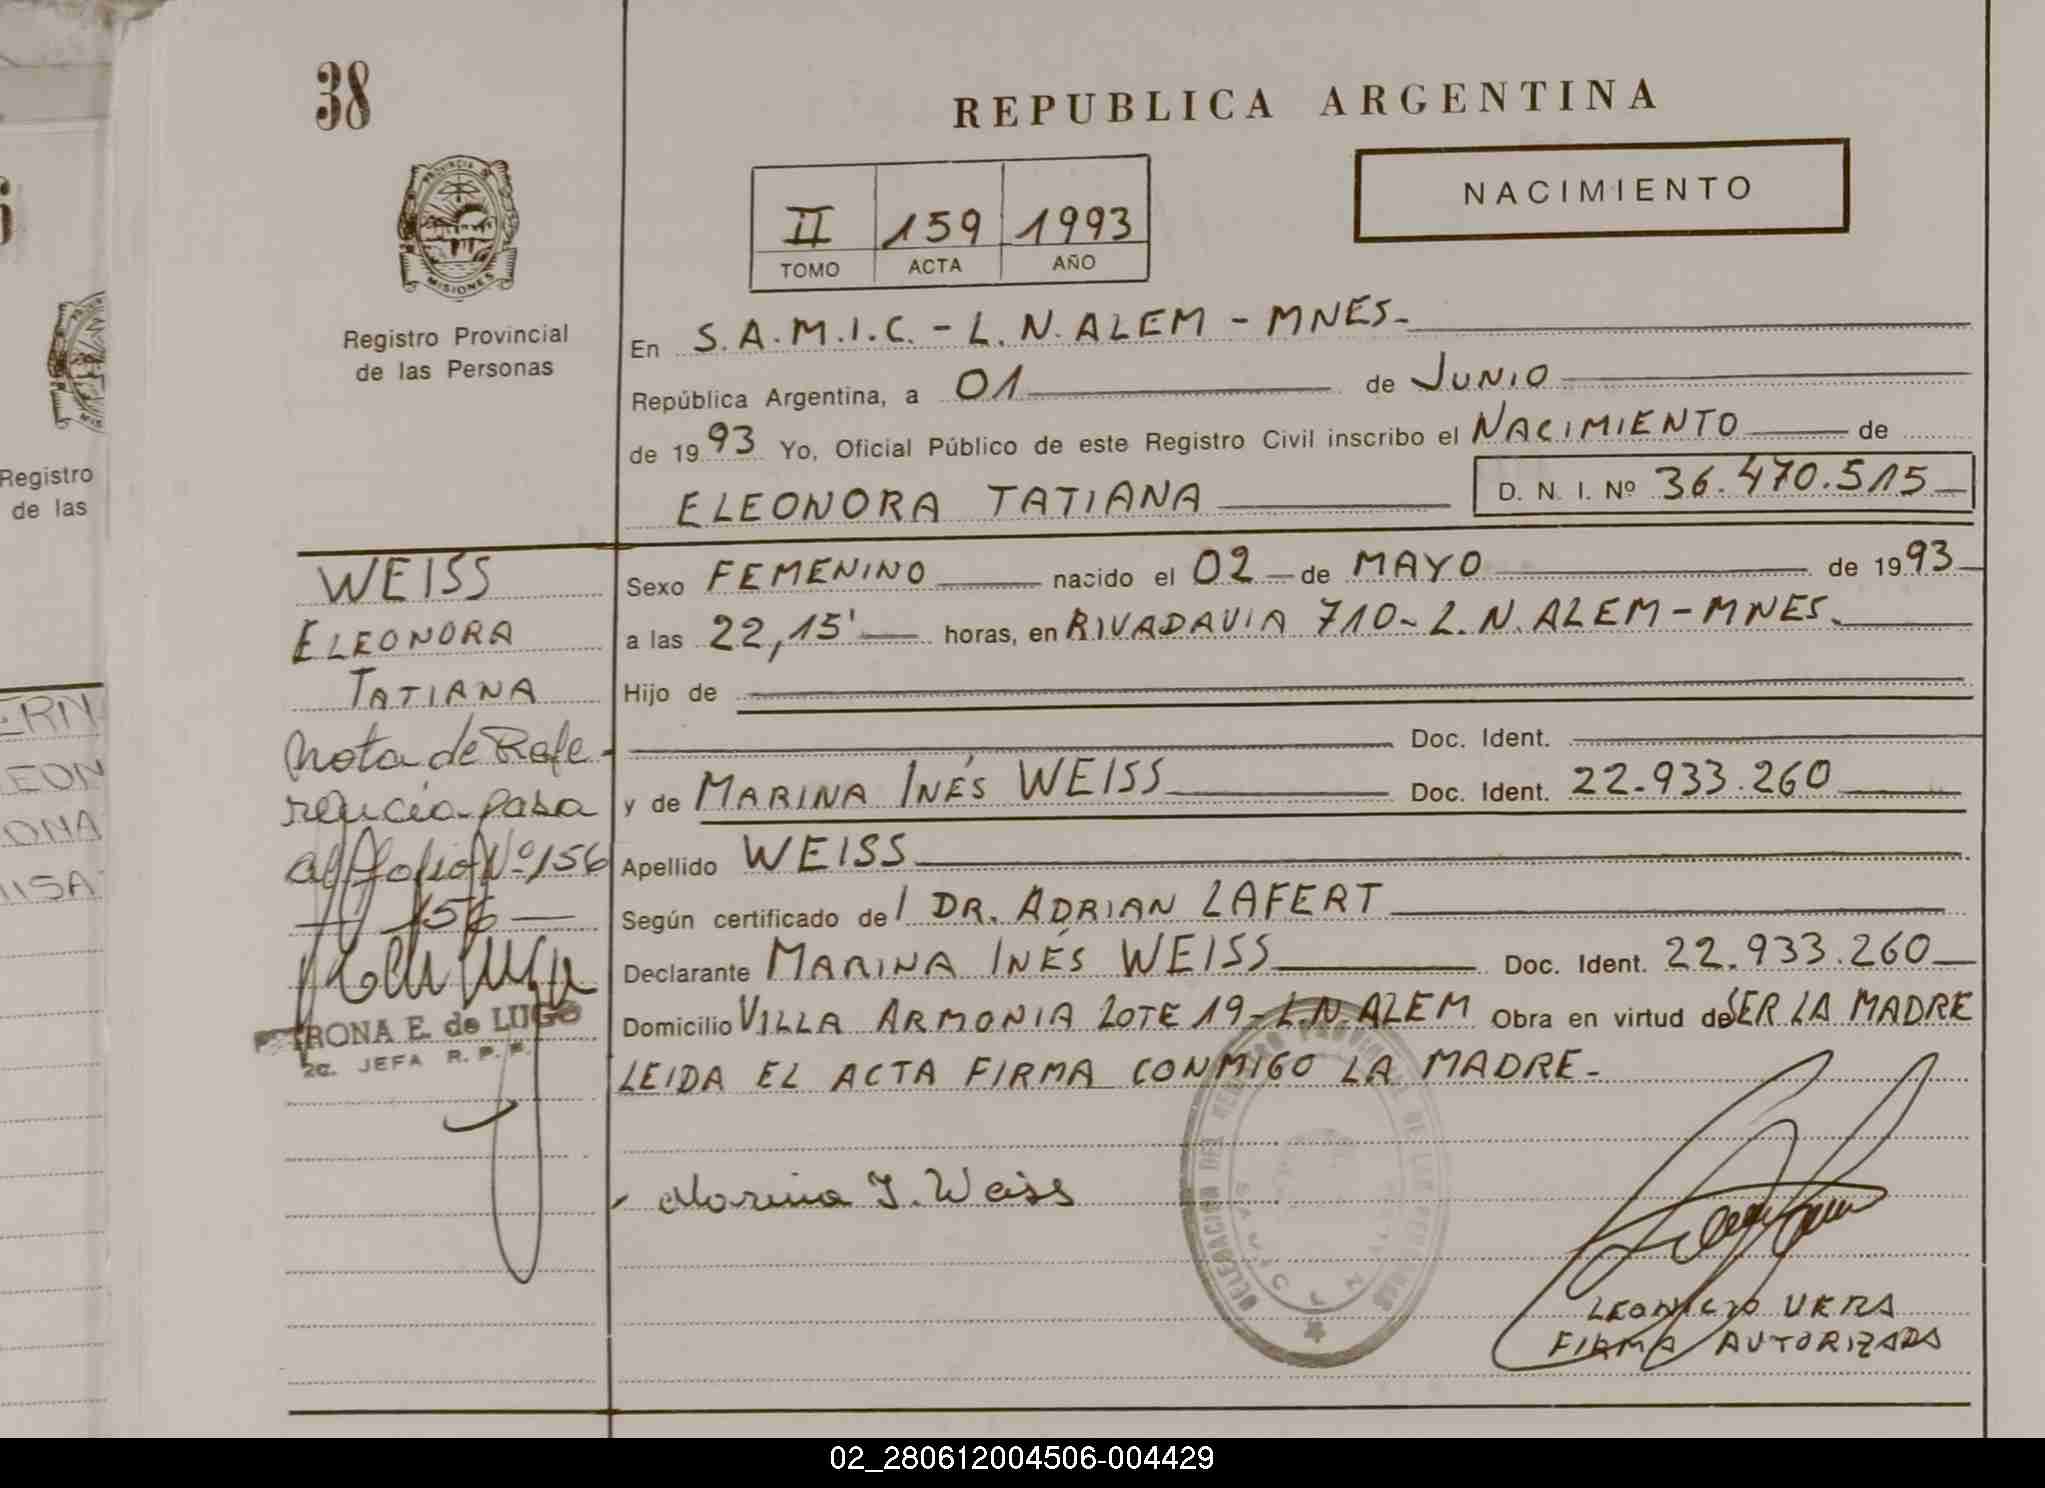 38
REPUBLICA ARGENTINA
PROVINCIA DE
MISIONES
Registro Provincial
de las Personas
II 159 1993
TOMO ACTA AÑO
NACIMIENTO
En S.A.M.I.C. - L.N. ALEM - MNES.
República Argentina, a 01 de JUNIO
de 19 93 Yo, Oficial Público de este Registro Civil inscribo el NACIMIENTO de
ELEONORA TATIANA D. N. I. Nº 36.470.515
WEISS
ELEONORA
TATIANA
Nota de Refe-
rencia pasa
al folio Nº 156
— 156 —
RONA E. de LUGO
JEFA R. P. P.
Sexo FEMENINO nacido el 02 de MAYO de 19 93
a las 22,15' horas, en RIVADAVIA 710 - L.N. ALEM - MNES.
Hijo de
Doc. Ident.
y de MARINA INÉS WEISS Doc. Ident. 22.933.260
Apellido WEISS
Según certificado de l DR. ADRIAN LAFERT
Declarante MARINA INÉS WEISS Doc. Ident. 22.933.260
Domicilio VILLA ARMONIA LOTE 19 - L.N. ALEM Obra en virtud de SER LA MADRE
LEIDA EL ACTA FIRMA CONMIGO LA MADRE.
Marina I. Weiss
DELEGACION DEL REGISTRO PROVINCIAL DE LAS PERSONAS
LEONICIO VERA
FIRMA AUTORIZADA
Registro
de las
ERN
LEON
ONA
UISA
02_280612004506-004429